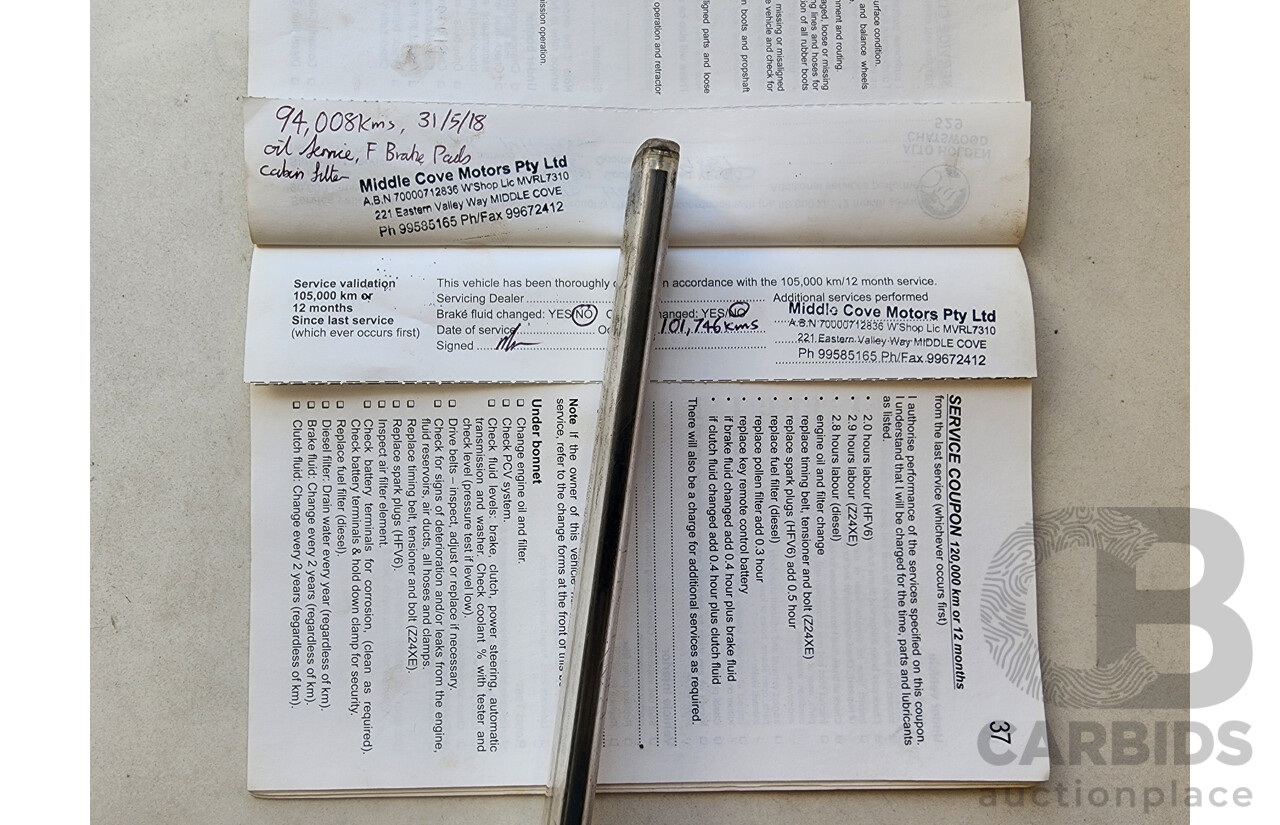 ission operation.
operation and retractor
ligned parts and loose
n boots and propshaft
missing or misaligned
e vehicle and check for
aged, loose or missing
ng lines and hoses for
on of all rubber boots
nment and routing.
and balance wheels
urface condition.
94,008kms, 31/5/18
oil Service, F Brake Pads
cabin filter
Middle Cove Motors Pty Ltd
A.B.N 70000712836 W'Shop Lic MVRL7310
221 Eastern Valley Way MIDDLE COVE
Ph 99585165 Ph/Fax 99672412
ALTO HOLDEN
CHATSWOOD
529
Service validation
105,000 km or
12 months
Since last service
(which ever occurs first)
This vehicle has been thoroughly n accordance with the 105,000 km/12 month service.
Servicing Dealer Additional services performed
Brake fluid changed: YES/NO hanged: YES/NO
Date of service 101,746 kms
Signed
Middle Cove Motors Pty Ltd
A.B.N 70000712836 W'Shop Lic MVRL7310
221 Eastern Valley Way MIDDLE COVE
Ph 99585165 Ph/Fax 99672412
37
SERVICE COUPON 120,000 km or 12 months
from the last service (whichever occurs first)
I authorise performance of the services specified on this coupon.
I understand that I will be charged for the time, parts and lubricants
as listed.
• 2.0 hours labour (HFV6)
• 2.9 hours labour (Z24XE)
• 2.8 hours labour (diesel)
• engine oil and filter change
• replace timing belt, tensioner and bolt (Z24XE)
• replace spark plugs (HFV6) add 0.5 hour
• replace fuel filter (diesel)
• replace pollen filter add 0.3 hour
• replace key remote control battery
• if brake fluid changed add 0.4 hour plus brake fluid
• if clutch fluid changed add 0.4 hour plus clutch fluid
There will also be a charge for additional services as required.
Note If the owner of this vehicle
service, refer to the change forms at the front of this
Under bonnet
Change engine oil and filter.
Check PCV system.
Check fluid levels: brake, clutch, power steering, automatic
transmission and washer. Check coolant % with tester and
check level (pressure test if level low).
Drive belts – inspect, adjust or replace if necessary.
Check for signs of deterioration and/or leaks from the engine,
fluid reservoirs, air ducts, all hoses and clamps.
Replace timing belt, tensioner and bolt (Z24XE).
Replace spark plugs (HFV6).
Inspect air filter element.
Check battery terminals for corrosion, (clean as required).
Check battery terminals & hold down clamp for security.
Replace fuel filter (diesel).
Diesel filter: Drain water every year (regardless of km).
Brake fluid: Change every 2 years (regardless of km).
Clutch fluid: Change every 2 years (regardless of km).
CB
CARBIDS
auctionplace